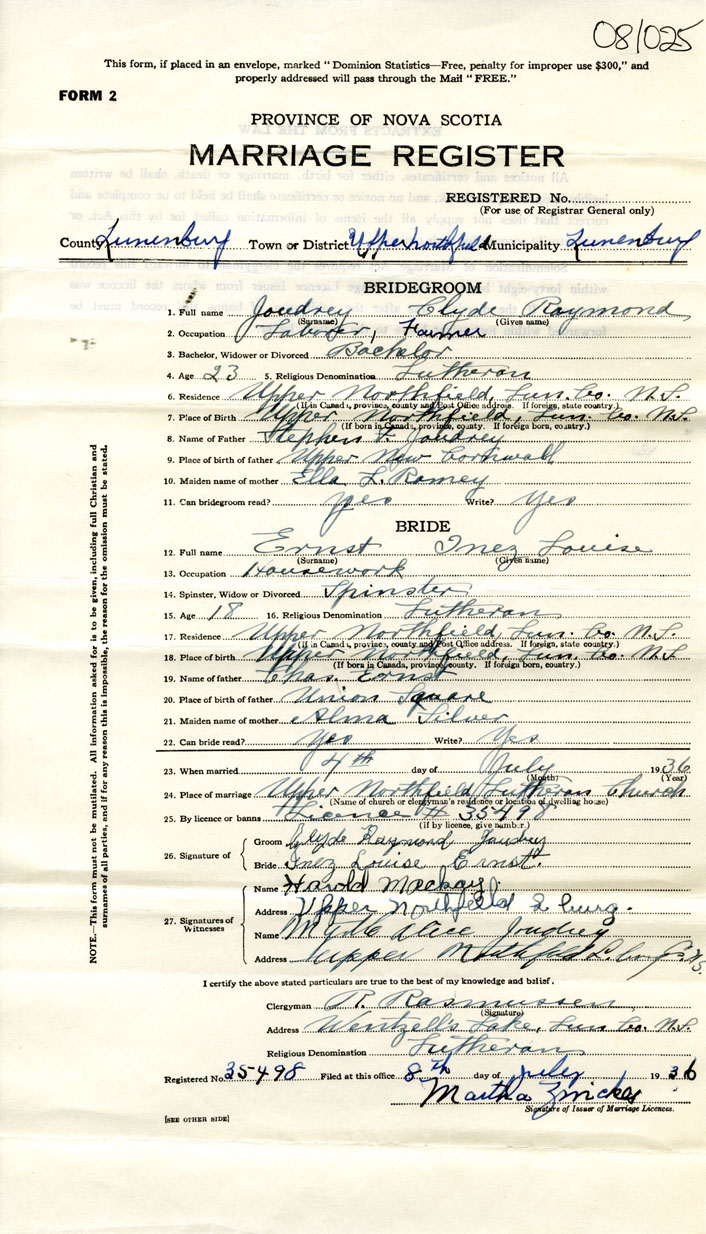 08/025
This form, if placed in an envelope, marked "Dominion Statistics—Free, penalty for improper use $300," and
properly addressed will pass through the Mail "FREE."
FORM 2
PROVINCE OF NOVA SCOTIA
MARRIAGE REGISTER
REGISTERED No.
(For use of Registrar General only)
County Lunenburg Town or District Upper Northfield Municipality Lunenburg
BRIDEGROOM
1. Full name Joudrey Clyde Raymond
(Surname) (Given name)
2. Occupation Laborer, Farmer
3. Bachelor, Widower or Divorced Bachelor
4. Age 23 5. Religious Denomination Lutheran
6. Residence Upper Northfield, Lun. Co. N.S.
(If in Canada, province, county and Post Office address. If foreign, state country.)
7. Place of Birth Upper Northfield, Lun. Co. N.S.
(If born in Canada, province, county. If foreign born, country.)
8. Name of Father Stephen F. Joudrey
9. Place of birth of father Upper New Cornwall
10. Maiden name of mother Ella L. Ramey
11. Can bridegroom read? yes Write? Yes
BRIDE
12. Full name Ernst Inez Louise
(Surname) (Given name)
13. Occupation Housework
14. Spinster, Widow or Divorced Spinster
15. Age 18 16. Religious Denomination Lutheran
17. Residence Upper Northfield, Lun. Co. N.S.
(If in Canada, province, county and Post Office address. If foreign, state country.)
18. Place of birth Upper Northfield, Lun. Co. N.S.
(If born in Canada, province, county. If foreign born, country.)
19. Name of father Chas. Ernst
20. Place of birth of father Union Square
21. Maiden name of mother Alma Silver
22. Can bride read? Yes Write? Yes
23. When married 4th day of July 1936
(Month) (Year)
24. Place of marriage Upper Northfield Lutheran Church
(Name of church or clergyman's residence or location of dwelling house)
25. By licence or banns Licence # 35498
(if by licence, give number.)
26. Signature of Groom Clyde Raymond Joudrey
Bride Inez Louise Ernst.
27. Signatures of Witnesses
Name Harold Mackay
Address Upper Northfield Lunrg.
Name Alice Joudrey
Address Upper Northfield
I certify the above stated particulars are true to the best of my knowledge and belief.
Clergyman P. Rasmussen
(Signature)
Address Wentzell's Lake, Lun. Co. N.S.
Religious Denomination Lutheran
Registered No. 35498 Filed at this office 8th day of July 1936
Martha Zwicker
Signature of Issuer of Marriage Licences.
[SEE OTHER SIDE]
NOTE.—This form must not be mutilated. All information asked for is to be given, including full Christian and
surnames of all parties, and if for any reason this is impossible, the reason for the omission must be stated.